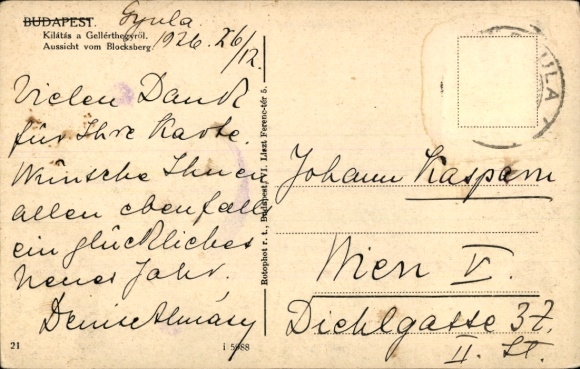 BUDAPEST.
Gyula
1926. 26/12.
Kilátás a Gellérthegyről.
Aussicht vom Blocksberg.
Vielen Dank
für Ihre Karte.
Wünsche Ihnen
allen ebenfalls
ein glückliches
Neues Jahr.
Denise Almásy
21
i 5988
Rotophot r. t., Budapest, VI. Liszt Ferenc-tér 5.
ULA
Johann Kaspar
Wien V.
Diehlgasse 37.
II. St.